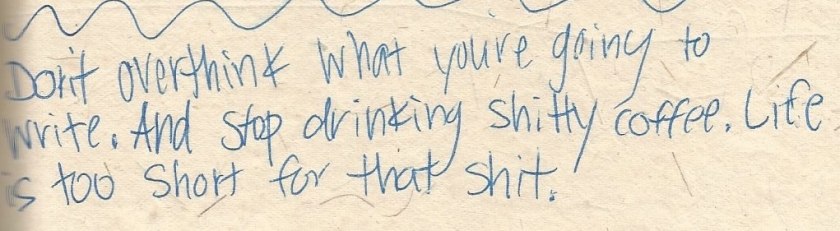 Don't overthink what you're going to
write. And stop drinking shitty coffee. Life
is too short for that shit.